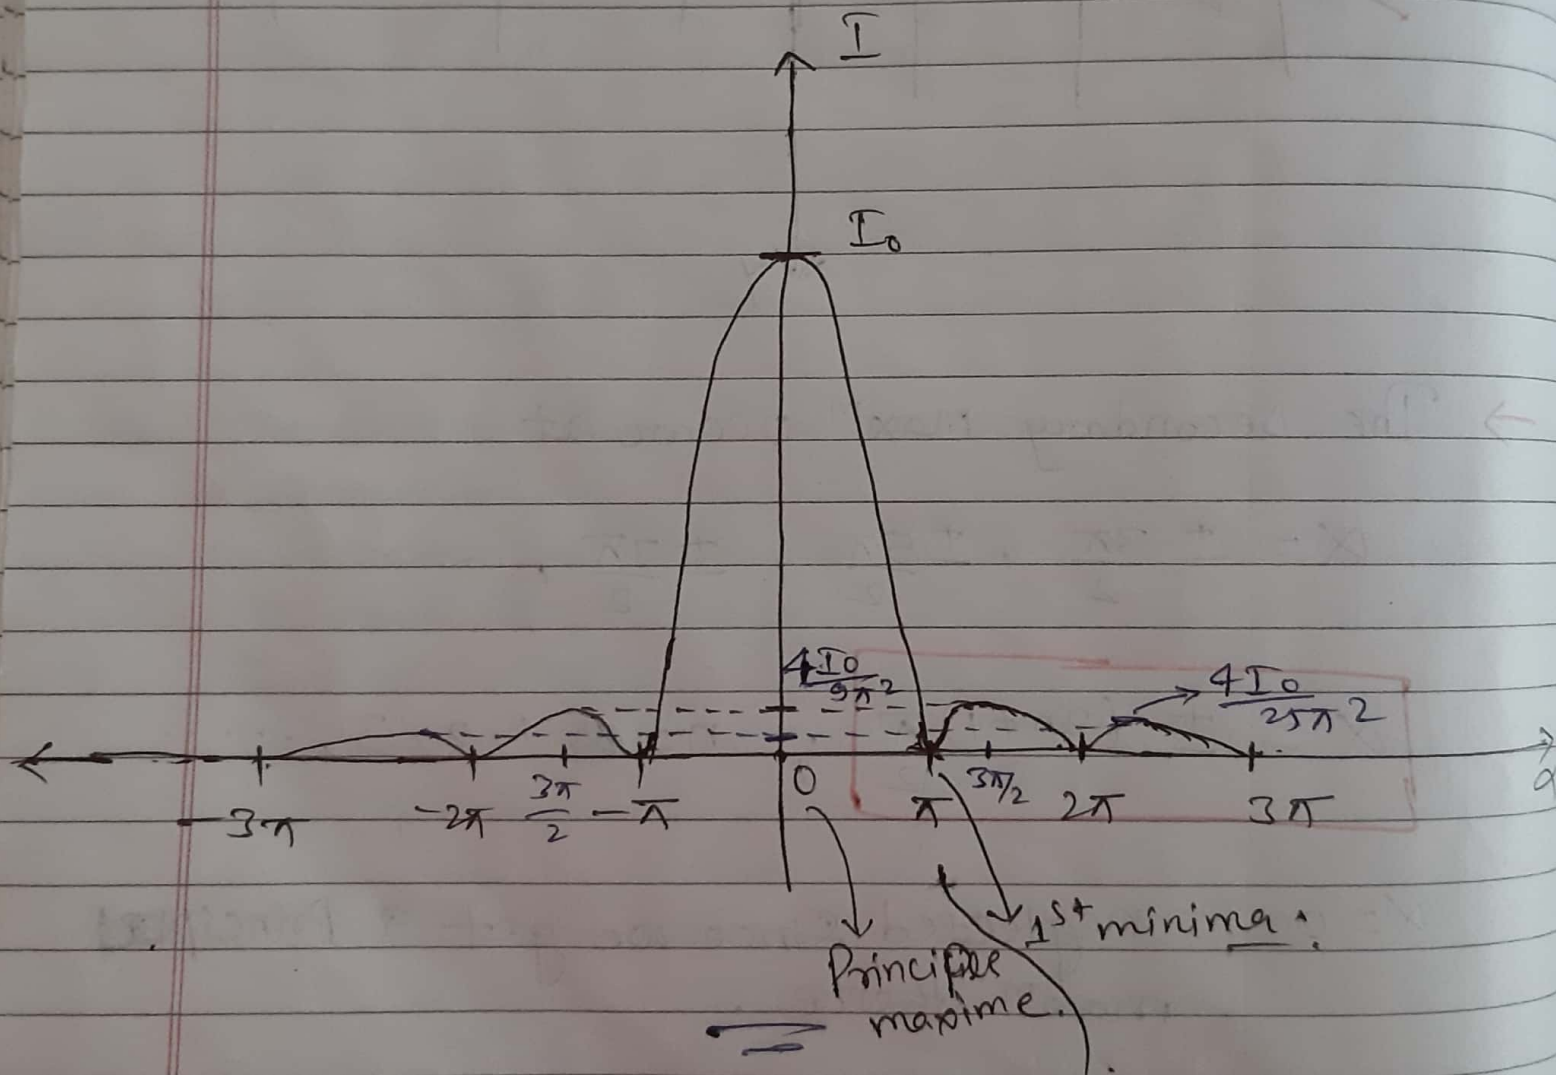 I
I₀
4I₀/9π²
4I₀/25π²
-3π
-2π
3π/2
-π
0
π
3π/2
2π
3π
1st minima.
Principle
maxime.